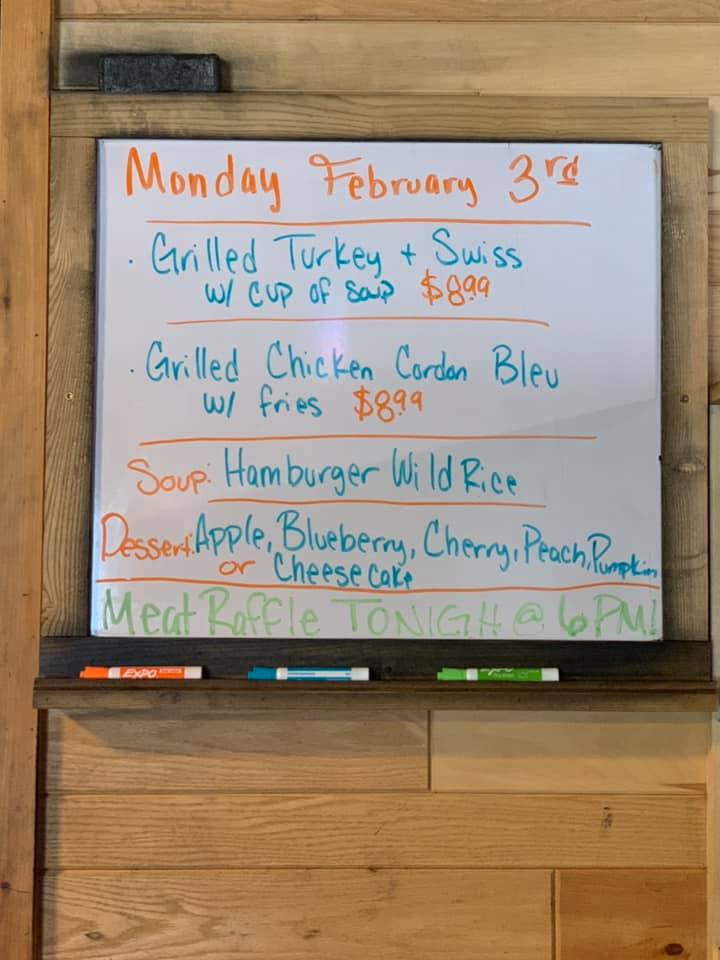 Monday February 3rd
· Grilled Turkey + Swiss
w/ cup of soup $8.99
· Grilled Chicken Cordon Bleu
w/ fries $8.99
Soup: Hamburger Wild Rice
Dessert: Apple, Blueberry, Cherry, Peach, Pumpkin
or Cheesecake
Meat Raffle TONIGH @ 6 PM!
EXPO